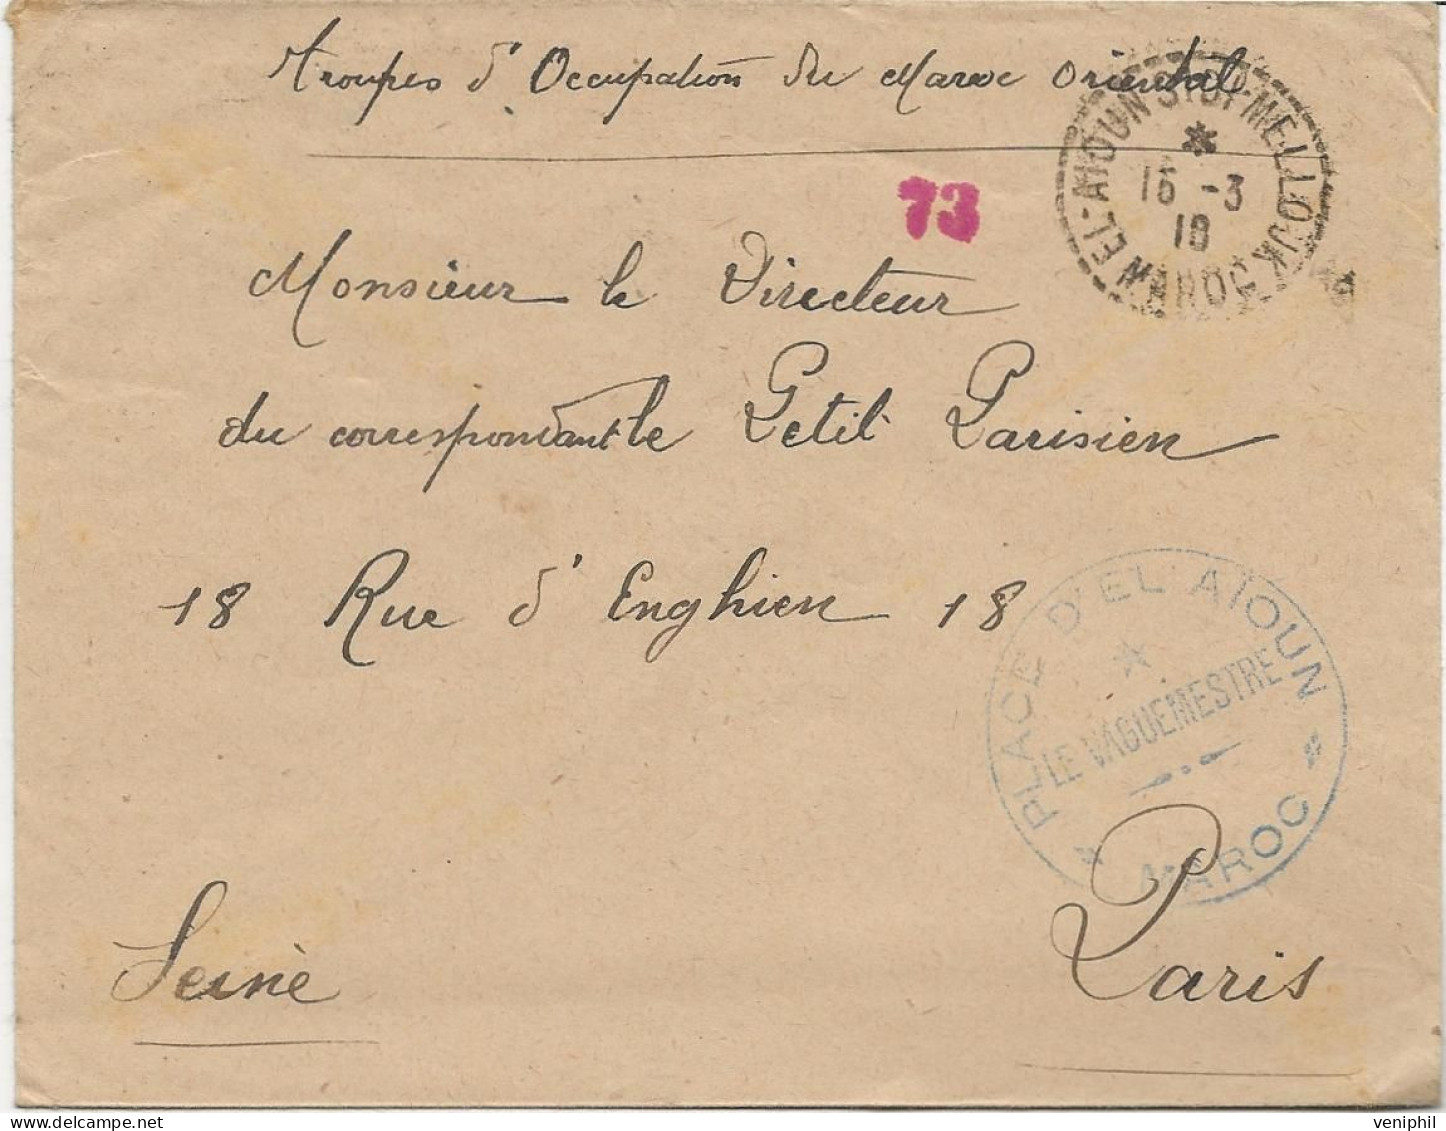 Troupes d'Occupation du Maroc Oriental
EL-AIOUN-SIDI-MELLOUK
16 -3
18
MAROC
73
Monsieur le Directeur
du correspondant le Petit Parisien
18 Rue d'Enghien 18
PLACE D'EL AÏOUN
LE VAGUEMESTRE
MAROC
Seine
Paris
veniphil